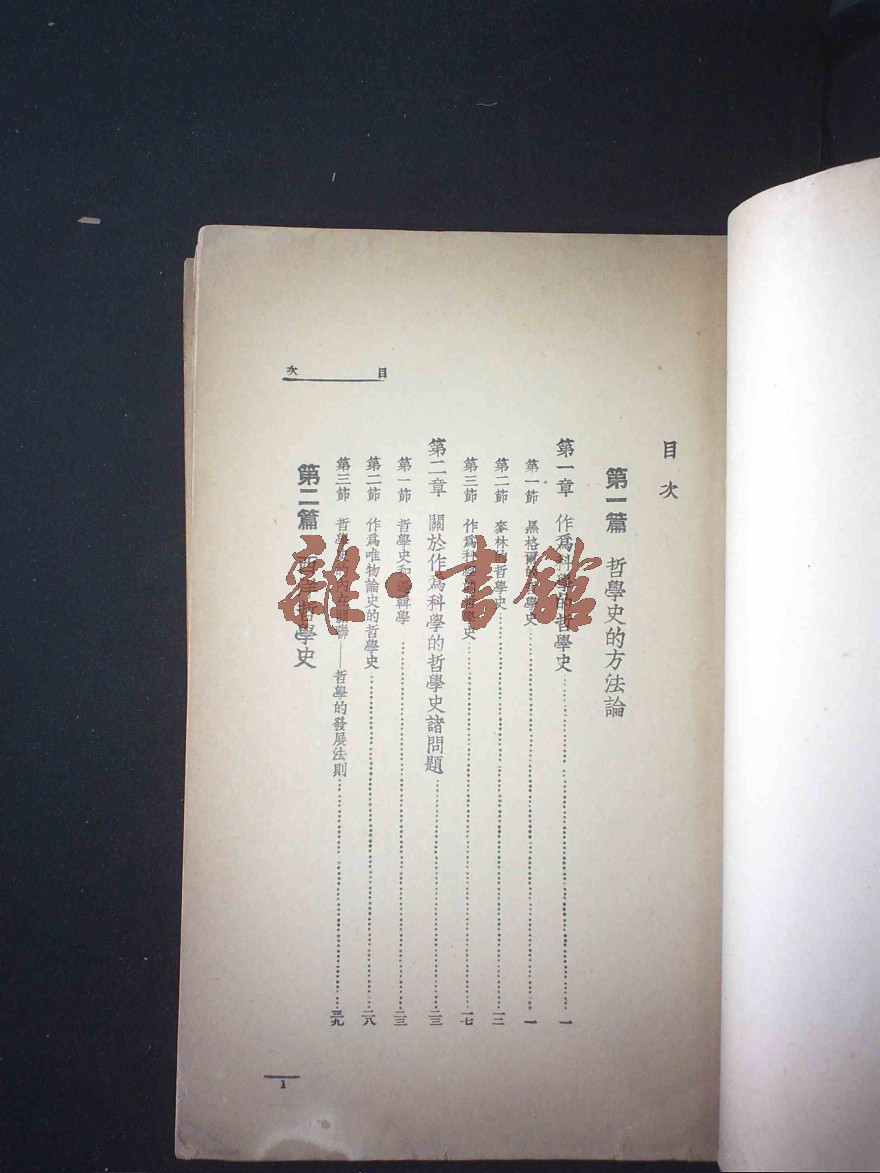 目次
第一篇 哲學史的方法論
第一章 作爲科學的哲學史……一
第一節 黑格爾的哲學史……一
第二節 麥林的哲學史……一二
第三節 作爲科學的哲學史……一七
第二章 關於作爲科學的哲學史諸問題……二三
第一節 哲學史和邏輯學……二三
第二節 作爲唯物論史的哲學史……二八
第三節 哲學史的內在關聯——哲學的發展法則……三九
第二篇 西洋哲學史
目次
1
雜·書館